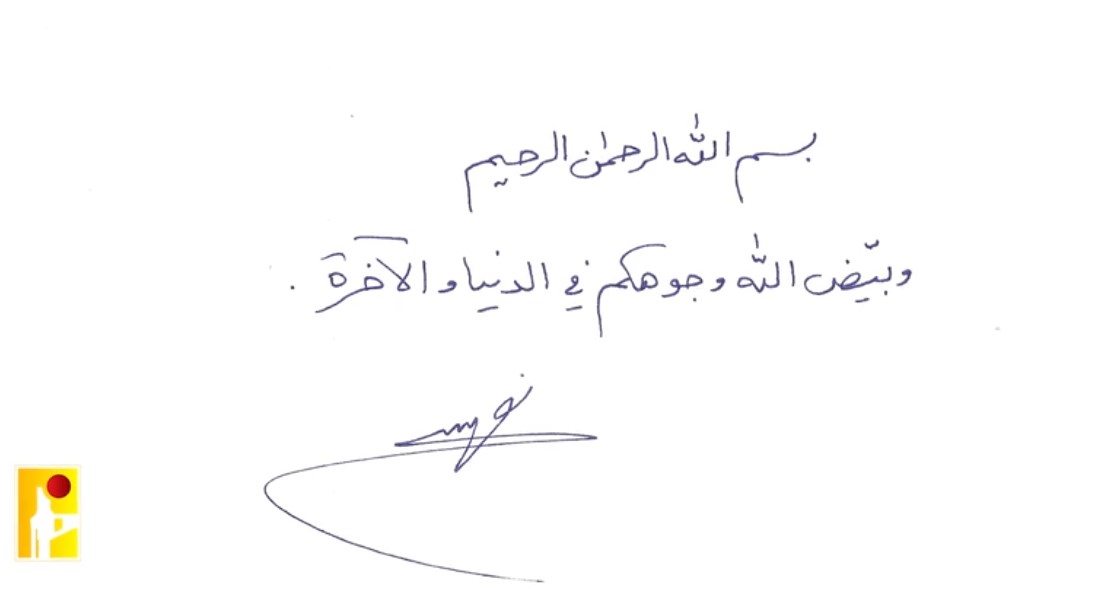 بسم اللّٰه الرحمٰن الرحيم
وبيّض اللّٰه وجوهكم في الدنيا و الآخرة .